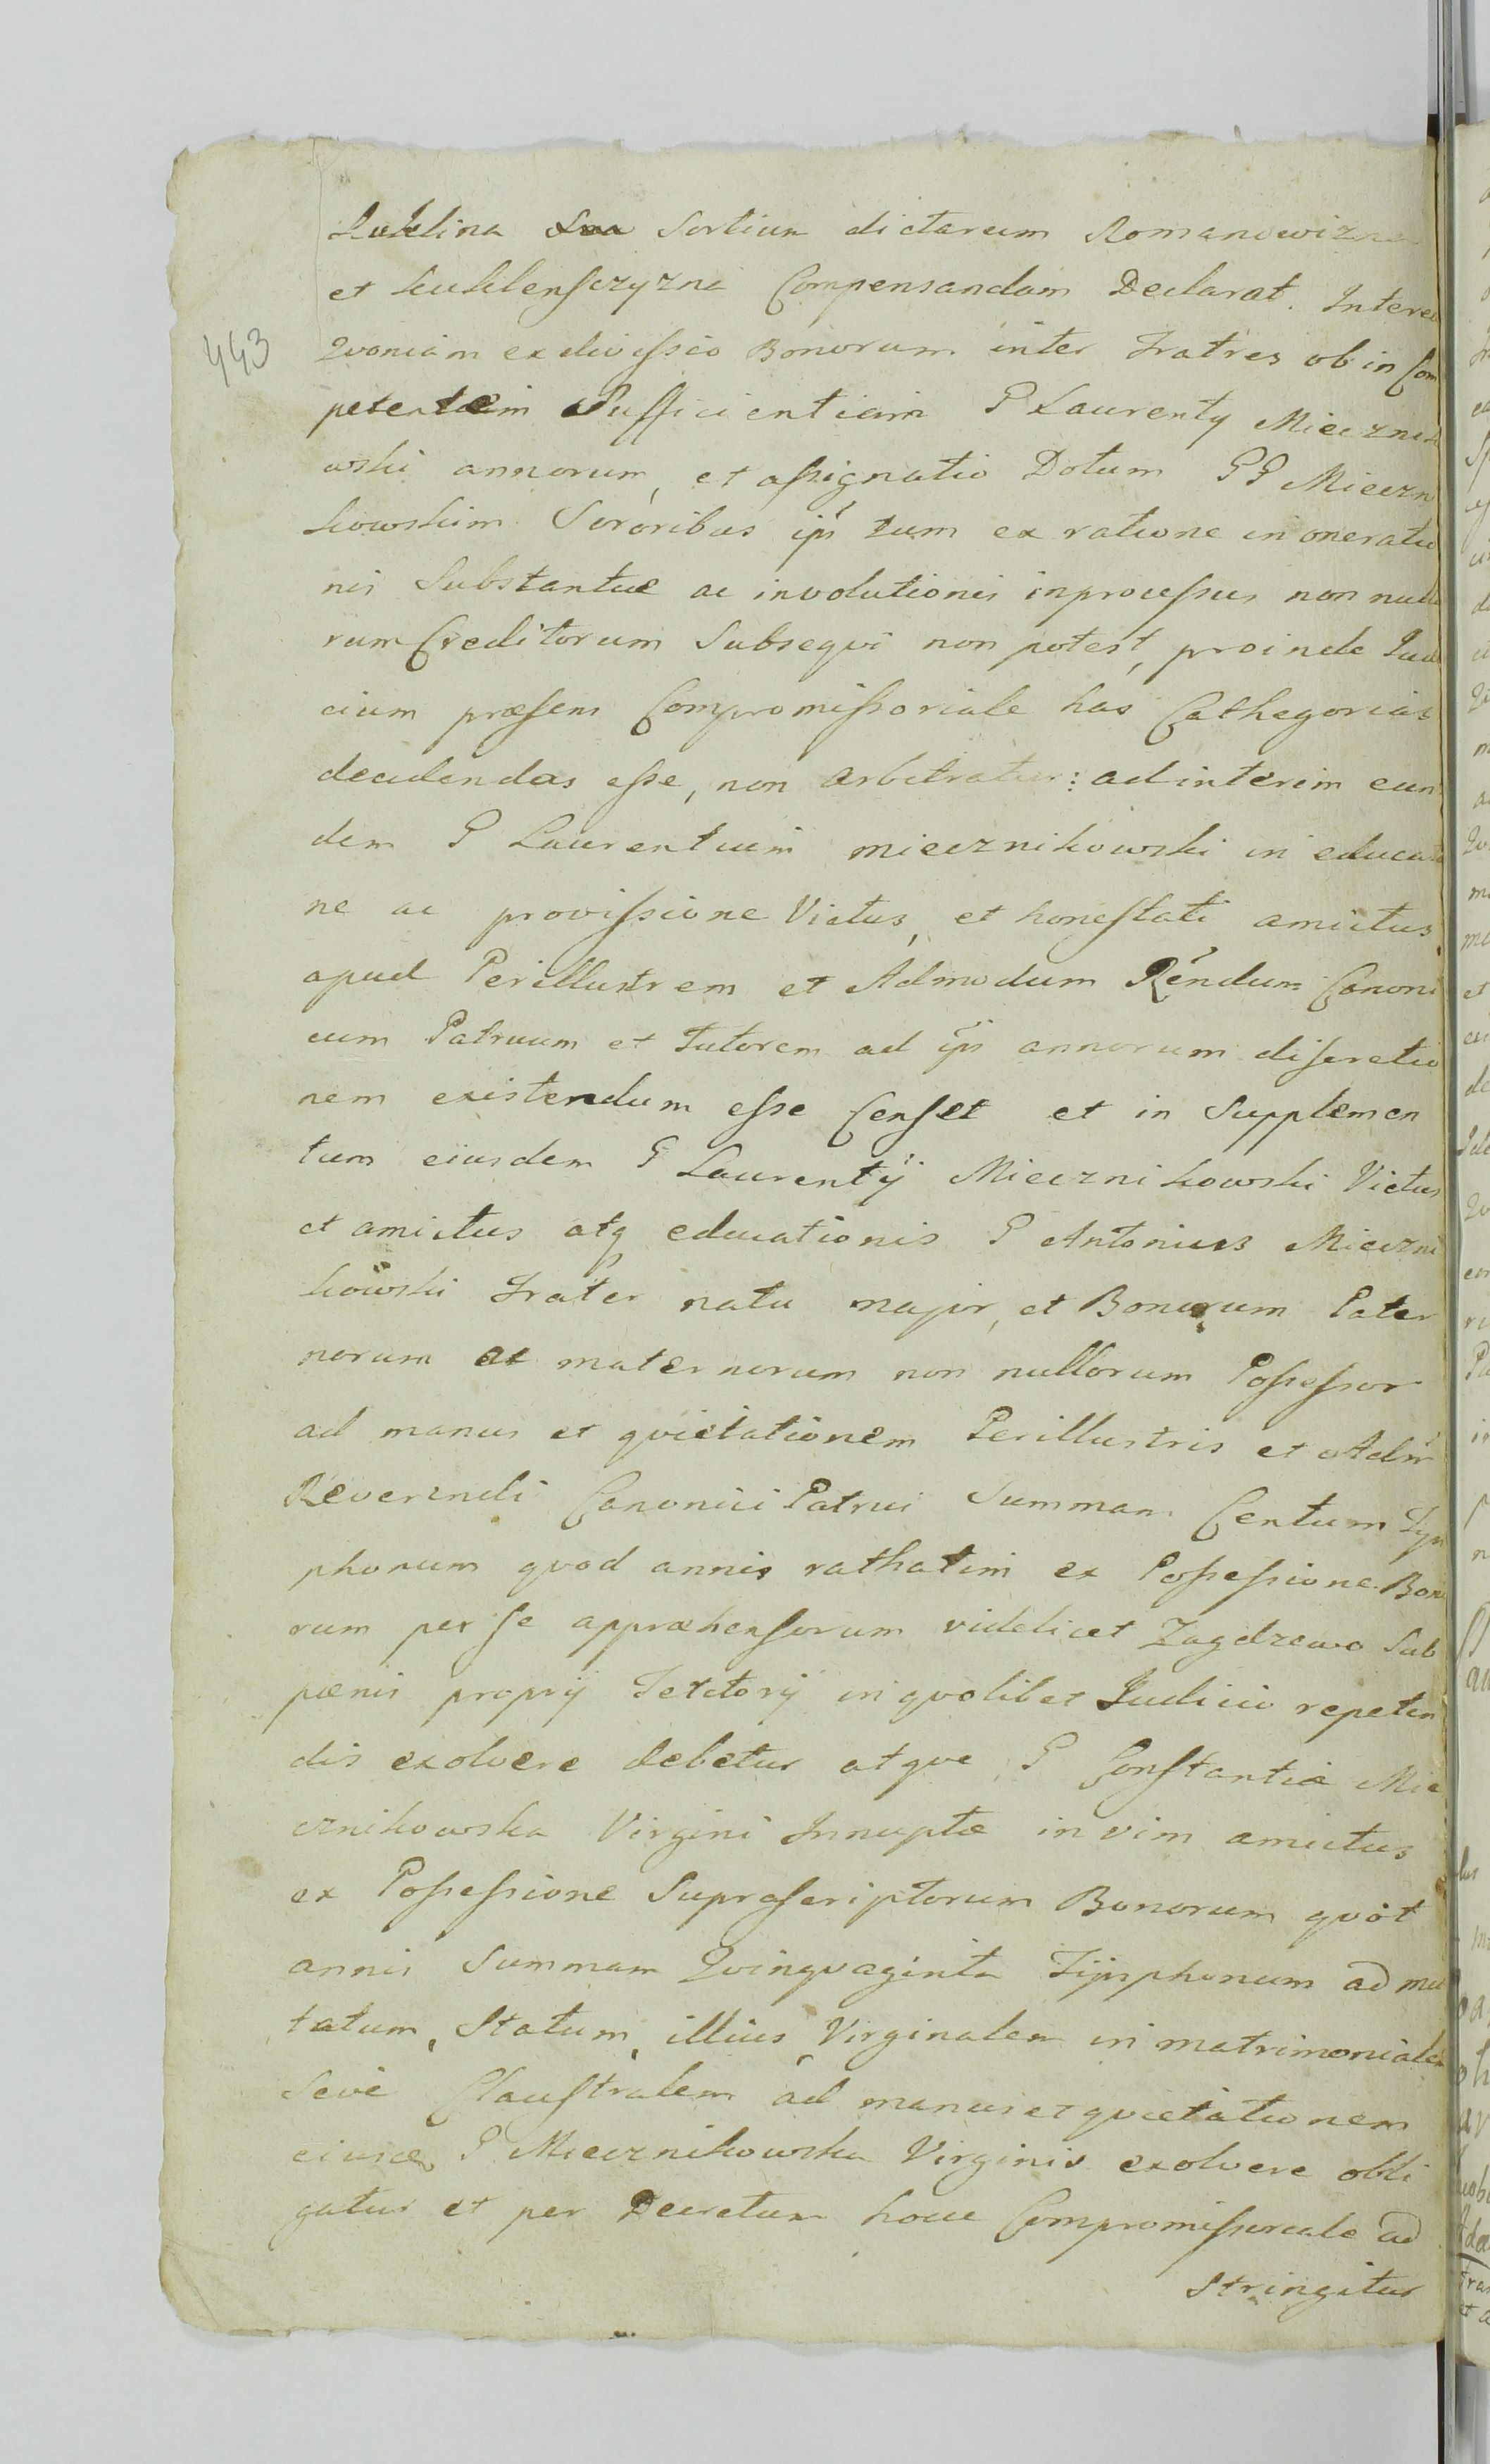 Kuklina Sua Sortium dictarum Romanowizna
et kuklensczyzna Compensandam Declarat. Interea
443
Qvoniam exdivissio Bonorum inter Fratres ob in Com
petentem Sufficientiam P Laurenty Mieczniko
wski annorum, et assignatio Dotum PP Mieczni
kowskim Sororibus ips tum ex ratione in oneratio
nis Substantiæ ac involutionis inprocessus non nullo
rum Creditorum Subseqvi non potest, proinde Iudi
cium præsens Compromissoriale has Cathegorias
decidendas esse, non arbitratur: ad interim eun
dem P Laurentium miecznikowski in educatio
ne ac provissione Victus, et honestati amictus,
apud Perillustrem et Admodum Rendum Canoni
cum Patruum et Tutorem ad ips annorum discretio
nem existendum esse Censet et in Supplemen
tum eiusdem P Laurentÿ Miecznikowski Victus
et amictus atq educationis P Antonius Mieczni
kowski Frater natu major, et Bonorum Pater
norum ac maternorum non nullorum Possessor
ad manus et qvietationem Perillustris et Adm
Reverendi Canonici Patrui Summam Centum Tym
phonum qvod annis rathatim ex Possessione Bono
rum per se appræhensorum videlicet Zagdzewo Sub
pænis proprÿ Tetitorÿ in qvolibet Iudicio repeten
dis exolvere debetur atqve P Constantiæ Mie
cznikowska Virgini Innuptæ in vim amictus
ex Possessione Suprascriptorum Bonorum qvot
annis Summam Qvinqvaginta Tÿmphonum ad mu
tatum, Statum, illius, Virginalem in matrimonialem
Seve Claustralem ad manus et qvietationem
eiusdem P Miecznikowska Virginis exolvere obli
gatur et per Decretum hocce Compromissoriale ad
stringitur